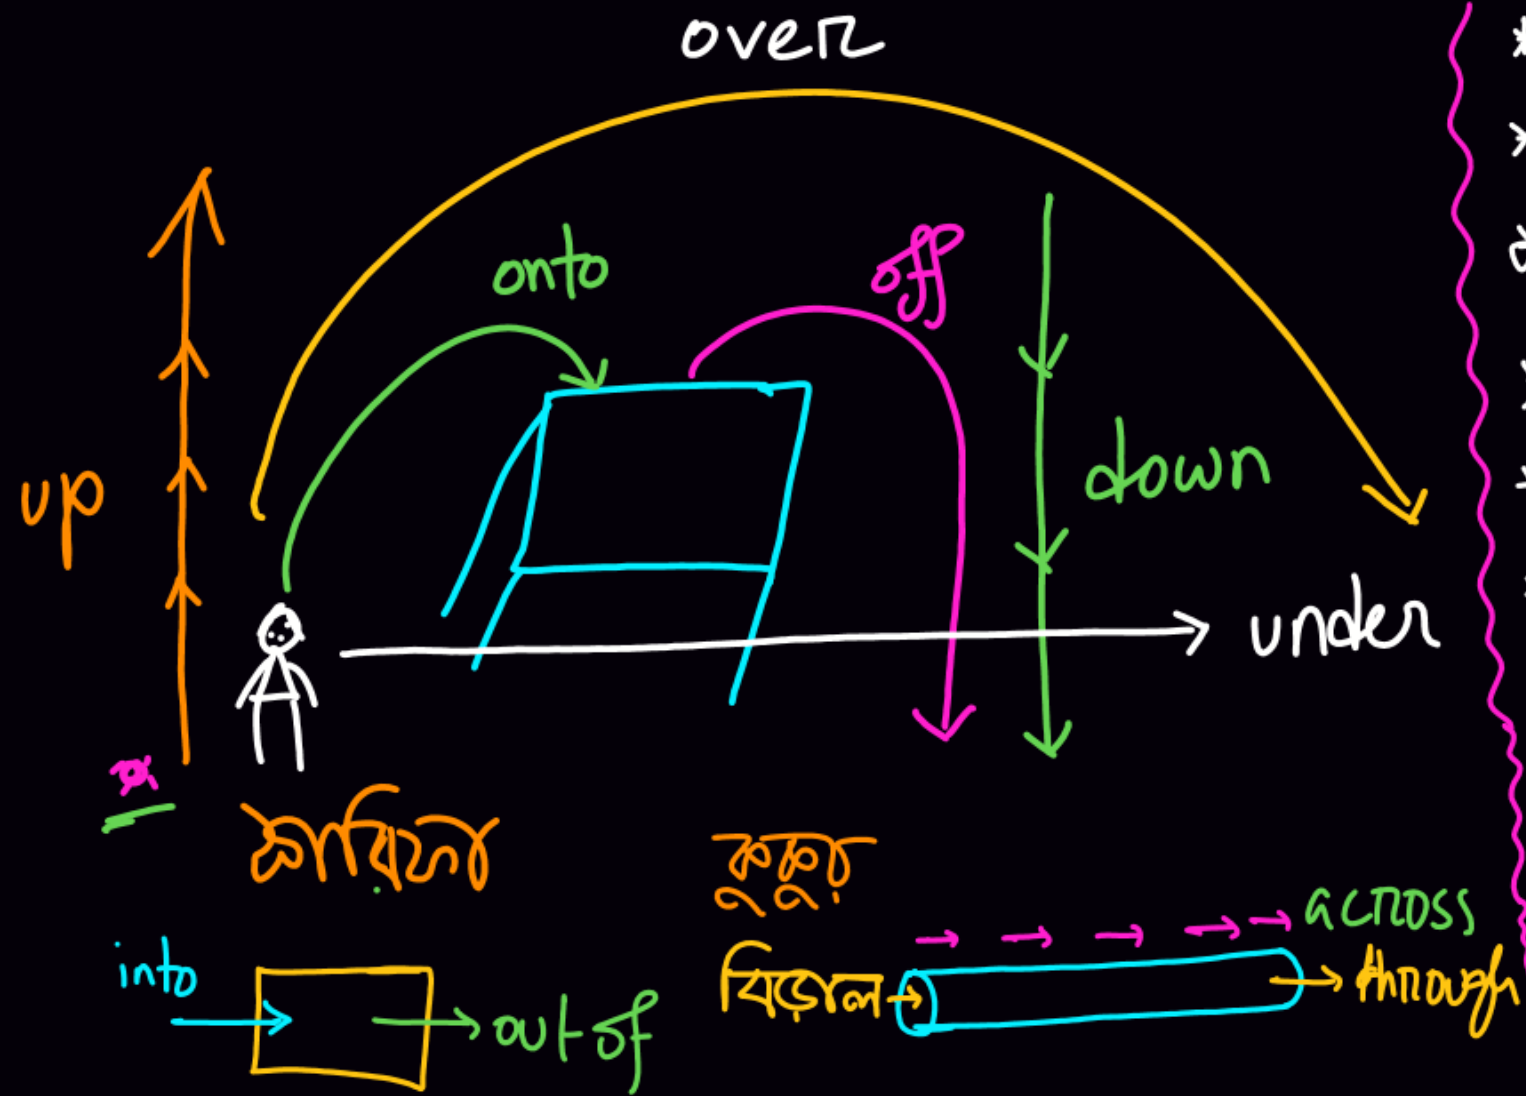 over
onto
off
up
down
under
কুকুর
into
out of
বিড়াল
across
through